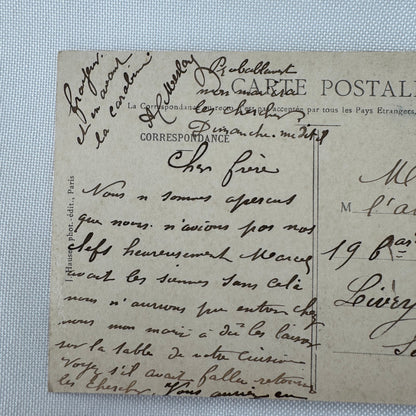 CARTE POSTALE
La Correspondance au recto n'est pas acceptée par tous les Pays Etrangers
CORRESPONDANCE
J. Hauser, phot.-édit., Paris
Probablement
mon mari ira
les chercher
Dimanche. me dit-il
et en avant
la carabine
Cher frère
Nous n sommes aperçus
que nous n'avions pas nos
clefs heureusement Marcel
avait les siennes sans celà
nous n'aurions pu entrer chez
nous mon mari a dû les laisser
sur la table de votre cuisine
Voyez s'il avait fallu retourner
les chercher. Vous auriez eu
M
l'a
196 bis
Livry
S